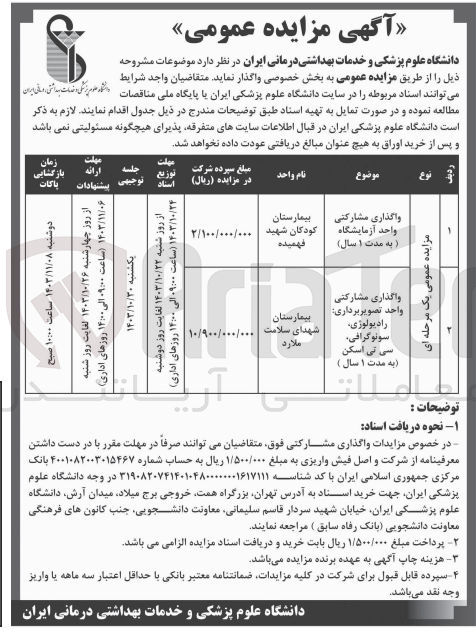 «آگهی مزایده عمومی»
دانشگاه علوم پزشکی و خدمات بهداشتی، درمانی ایران
دانشگاه علوم پزشکی و خدمات بهداشتی درمانی ایران در نظر دارد موضوعات مشروحه
ذیل را از طریق مزایده عمومی به بخش خصوصی واگذار نماید. متقاضیان واجد شرایط
می‌توانند اسناد مربوطه را در سایت دانشگاه علوم پزشکی ایران یا پایگاه ملی مناقصات
مطالعه نموده و در صورت تمایل به تهیه اسناد طبق توضیحات مندرج در ذیل جدول اقدام نمایند. لازم به ذکر
است دانشگاه علوم پزشکی ایران در قبال اطلاعات سایت های متفرقه، پذیرای هیچگونه مسئولیتی نمی باشد
و پس از خرید اوراق به هیچ عنوان مبالغ دریافتی عودت داده نخواهد شد.
ردیف
نوع
موضوع
نام واحد
مبلغ سپرده شرکت در مزایده (ریال)
مهلت توزیع اسناد
جلسه توجیهی
مهلت ارائه پیشنهادات
زمان بازگشایی پاکات
۱
مزایده عمومی یک مرحله ای
واگذاری مشارکتی
واحد آزمایشگاه
( به مدت ۱ سال)
بیمارستان
کودکان شهید
فهمیده
۲/۱۰۰/۰۰۰/۰۰۰
از روز شنبه ۱۴۰۳/۱۰/۲۲ لغایت روز دوشنبه
۱۴۰۳/۱۰/۲۴ (ساعت ۰۹:۰۰ الی ۱۴:۰۰ روزهای اداری)
یکشنبه ۱۴۰۳/۱۰/۳۰
از روز چهارشنبه ۱۴۰۳/۱۰/۲۶ لغایت روز شنبه
۱۴۰۳/۱۱/۰۶ (ساعت ۰۹:۰۰ الی ۱۴:۰۰ روزهای اداری)
دوشنبه ۱۴۰۳/۱۱/۰۸ ساعت ۱۰:۰۰ صبح
۲
واگذاری مشارکتی
واحد تصویربرداری:
رادیولوژی،
سونوگرافی،
سی تی اسکن
(به مدت ۱ سال )
بیمارستان
شهدای سلامت
ملارد
۱۰/۹۰۰/۰۰۰/۰۰۰
توضیحات :
۱- نحوه دریافت اسناد:
- در خصوص مزایدات واگذاری مشارکتی فوق، متقاضیان می توانند صرفاً در مهلت مقرر با در دست داشتن
معرفینامه از شرکت و اصل فیش واریزی به مبلغ ۱/۵۰۰/۰۰۰ ریال به حساب شماره ۴۰۰۱۰۸۲۰۰۳۰۱۵۴۶۷ بانک
مرکزی جمهوری اسلامی ایران با کد شناسه ۳۱۹۰۸۲۰۷۴۱۴۰۱۰۴۸۰۰۰۰۰۰۰۱۶۱۷۱۱۱ در وجه دانشگاه علوم
پزشکی ایران، جهت خرید اسناد به آدرس تهران، بزرگراه همت، خروجی برج میلاد، میدان آرش، دانشگاه
علوم پزشکی ایران، خیابان شهید سردار قاسم سلیمانی، معاونت دانشجویی، جنب کانون های فرهنگی
معاونت دانشجویی (بانک رفاه سابق ) مراجعه نمایند.
۲- پرداخت مبلغ ۱/۵۰۰/۰۰۰ ریال بابت خرید و دریافت اسناد مزایده الزامی می باشد.
۳- هزینه چاپ آگهی به عهده برنده مزایده می‌باشد.
۴-سپرده قابل قبول برای شرکت در کلیه مزایدات، ضمانتنامه معتبر بانکی با حداقل اعتبار سه ماهه یا واریز
وجه نقد می‌باشد.
دانشگاه علوم پزشکی و خدمات بهداشتی درمانی ایران